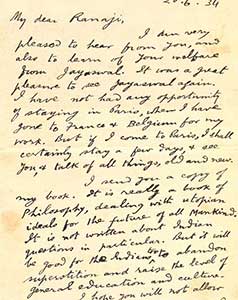 20.6.34
My dear Ranaji,
I am very
pleased to hear from you, and
also to learn of your welfare
from Jayaswal. It was a great
pleasure to see Jayaswal again.
I have not had any opportunity
of staying in Paris, when I have
gone to France & Belgium for my
work. But if I come to Paris, I shall
certainly stay a few days, & see
you, & talk of all things, old and new.
I send you a copy of
my book. It is really a book of
Philosophy, dealing with utopian
ideals for the future of all Mankind.
It is not written about Indian
questions in particular. But it will
be good for the Indians, to abandon
superstition and raise the level of
general education and culture.
I hope you will not allow